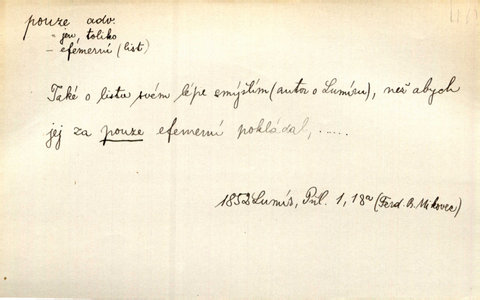 pouze adv.
= jen, toliko
– efemerní (list)
Také o listu svém lépe smýšlím (autor o Lumíru), než abych
jej za pouze efemerní pokládal, ......
1852 Lumír, Příl. 1, 18a (Ferd. B. Mikovec)